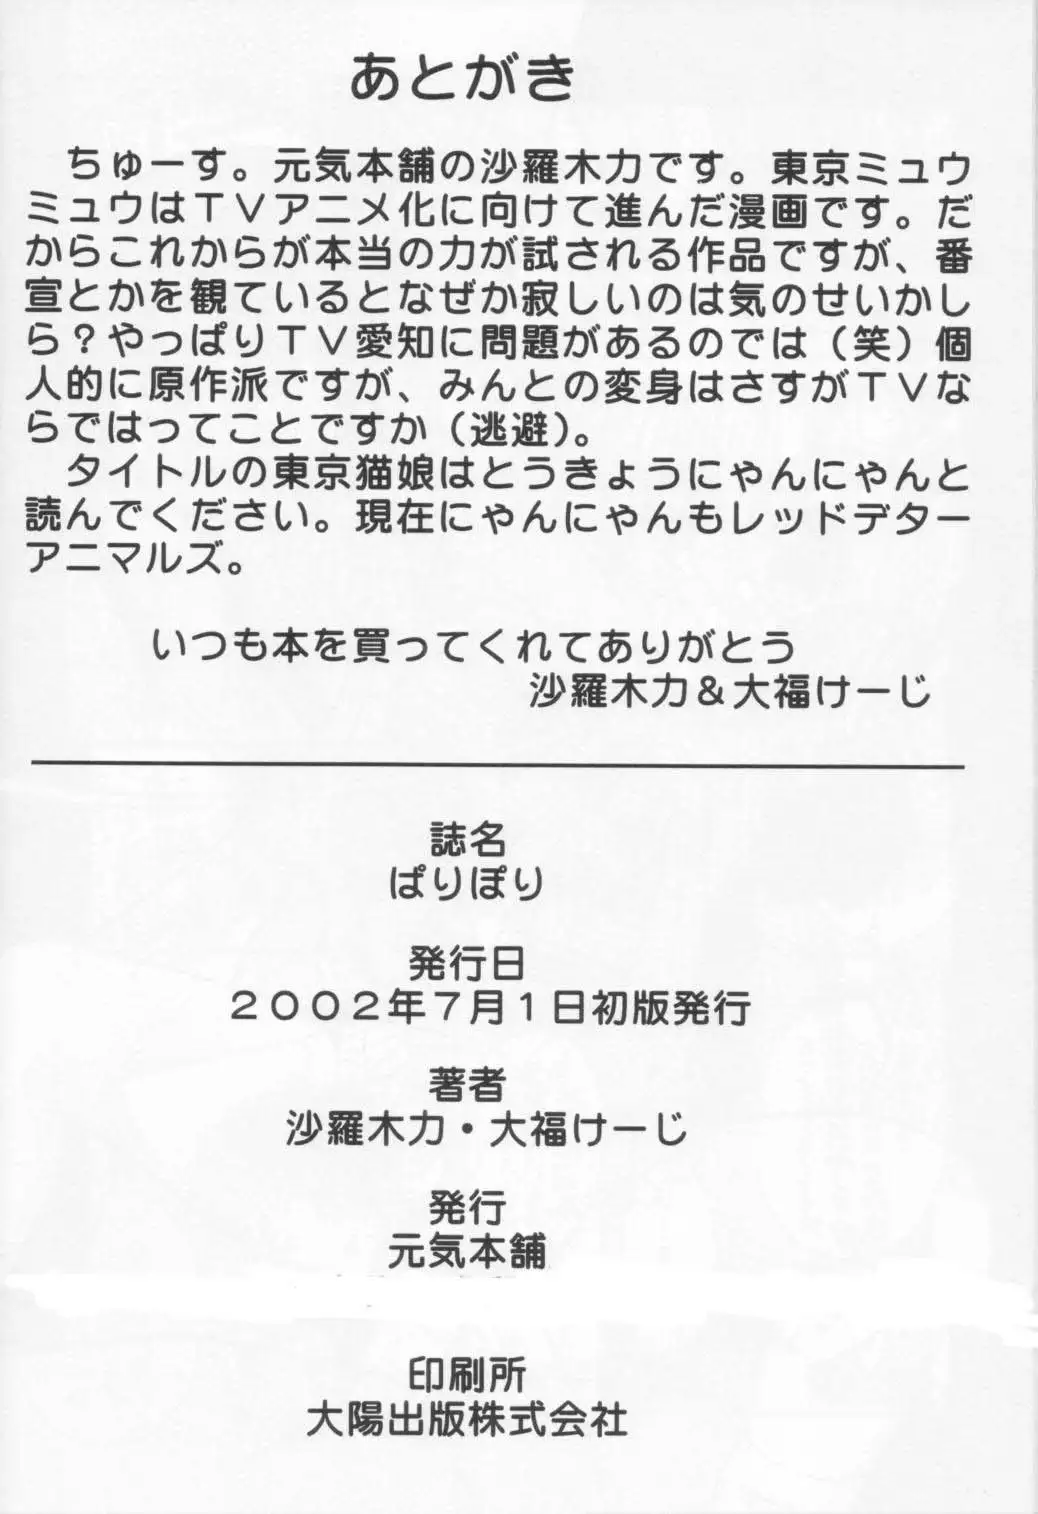 あとがき
　ちゅーす。元気本舗の沙羅木力です。東京ミュウ
ミュウはＴＶアニメ化に向けて進んだ漫画です。だ
からこれからが本当の力が試される作品ですが、番
宣とかを観ているとなぜか寂しいのは気のせいかし
ら？やっぱりＴＶ愛知に問題があるのでは（笑）個
人的に原作派ですが、みんとの変身はさすがＴＶな
らではってことですか（逃避）。
　タイトルの東京猫娘はとうきょうにゃんにゃんと
読んでください。現在にゃんにゃんもレッドデター
アニマルズ。
いつも本を買ってくれてありがとう
沙羅木力＆大福けーじ
誌名
ぱりぽり
発行日
２００２年７月１日初版発行
著者
沙羅木力・大福けーじ
発行
元気本舗
印刷所
大陽出版株式会社